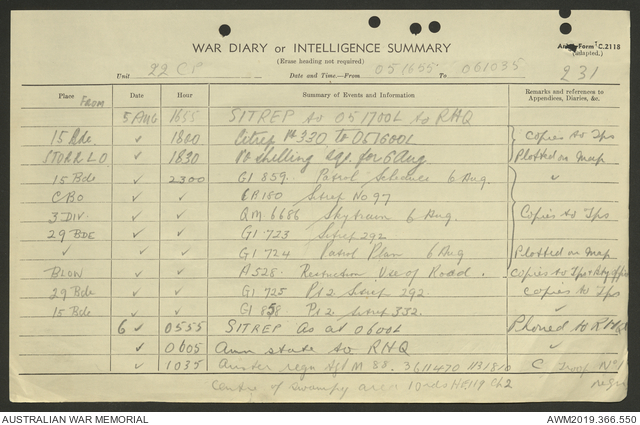 WAR DIARY or INTELLIGENCE SUMMARY
Army Form C.2118
(adapted.)
(Erase heading not required)
Unit 22 CP Date and Time—From 051655 To 061035 231
Place From Date Hour Summary of Events and Information Remarks and references to Appendices, Diaries, &c.
5 AUG 1655 SITREP to 051700L to RHQ
15 Bde ✓ 1800 Citrep 330 to 051600L Copies to Tps
✓ 1830 shelling for 6 Aug Plotted on map
15 Bde ✓ 2300 GI 859. Patrol Schedule 6 Aug. ✓
CBO ✓ ✓ CB 180 Sitrep No 97
3 DIV. ✓ ✓ QM 6686 Skytrain 6 Aug. Copies to Tps
29 BDE ✓ ✓ GI 723 Sitrep 292
✓ ✓ ✓ GI 724 Patrol Plan 6 Aug Plotted on Map
✓ ✓ A525. Restriction Use of Road. Copies to Tps
29 Bde ✓ ✓ GI 725 Pt 2 Sitrep 292. copies to Tps
15 Bde ✓ ✓ GI 858 Pt 2 Sitrep 332. ✓
6 ✓ 0555 SITREP As at 0600L Phoned to RHQ
✓ 0605 Amm state to RHQ ✓
✓ 1035 Auster regn M 88. 3611470 1131810 C Troop
Centre of Swampy area
AUSTRALIAN WAR MEMORIAL
AWM2019.366.550